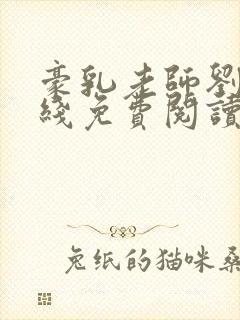 豪乳老師劉
綫免費閱讀
兔紙的猫咪桑